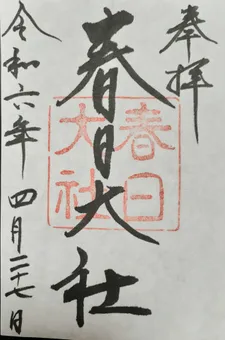 奉拝
春日大社
春日大社
令和六年 四月二十七日